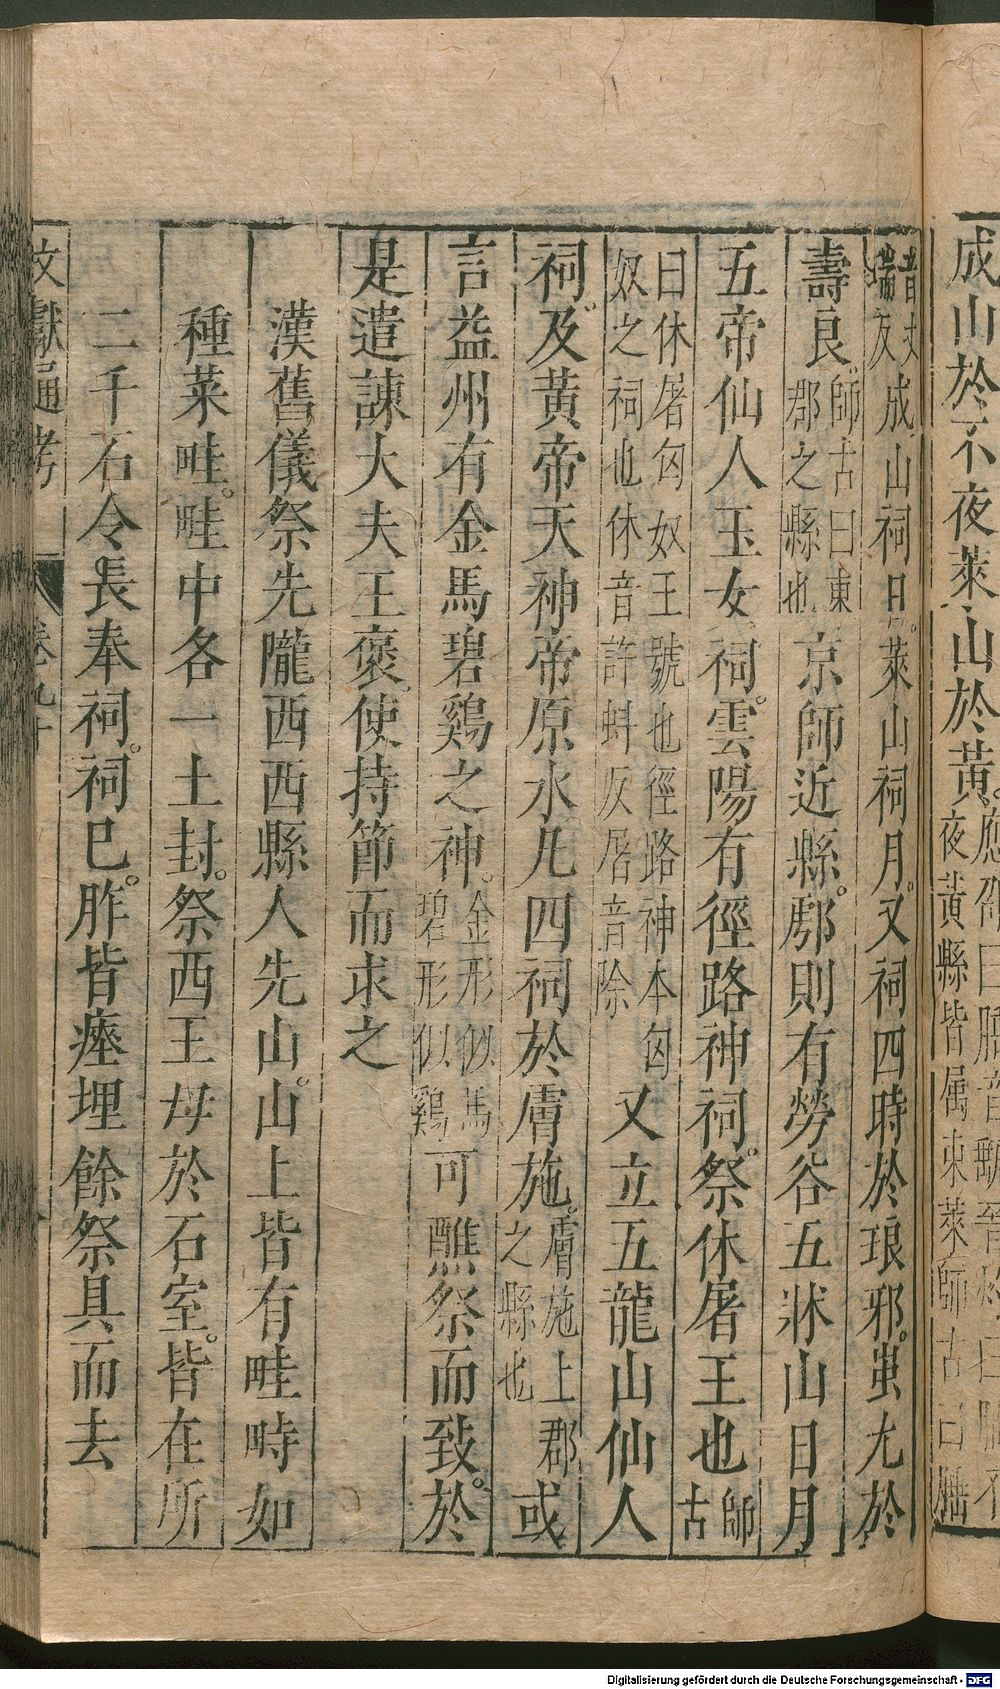 成山於不夜萊山於黃應劭曰腄音甀晉灼曰腄不夜黃縣皆属東萊師古曰腄
音丈瑞反成山祠日萊山祠月又祠四時於琅邪蚩尤於
壽良師古曰東郡之縣也京師近縣鄠則有勞谷五牀山日月
五帝仙人玉女祠雲陽有徑路神祠祭休屠王也師古
曰休屠匈奴王號也徑路神本匈奴之祠也休音許蚪反屠音除又立五龍山仙人
祠及黃帝天神帝原水凡四祠於膚施膚施上郡之縣也或
言益州有金馬碧鷄之神金形似馬碧形似鷄可醮祭而致於
是遣諫大夫王褒使持節而求之
漢舊儀祭先隴西西縣人先山山上皆有畦畤如
種菜畦畦中各一土封祭西王母於石室皆在所
二千石令長奉祠祠巳胙皆瘞埋餘祭具而去
文獻通考 卷九十
Digitalisierung gefördert durch die Deutsche Forschungsgemeinschaft - DFG